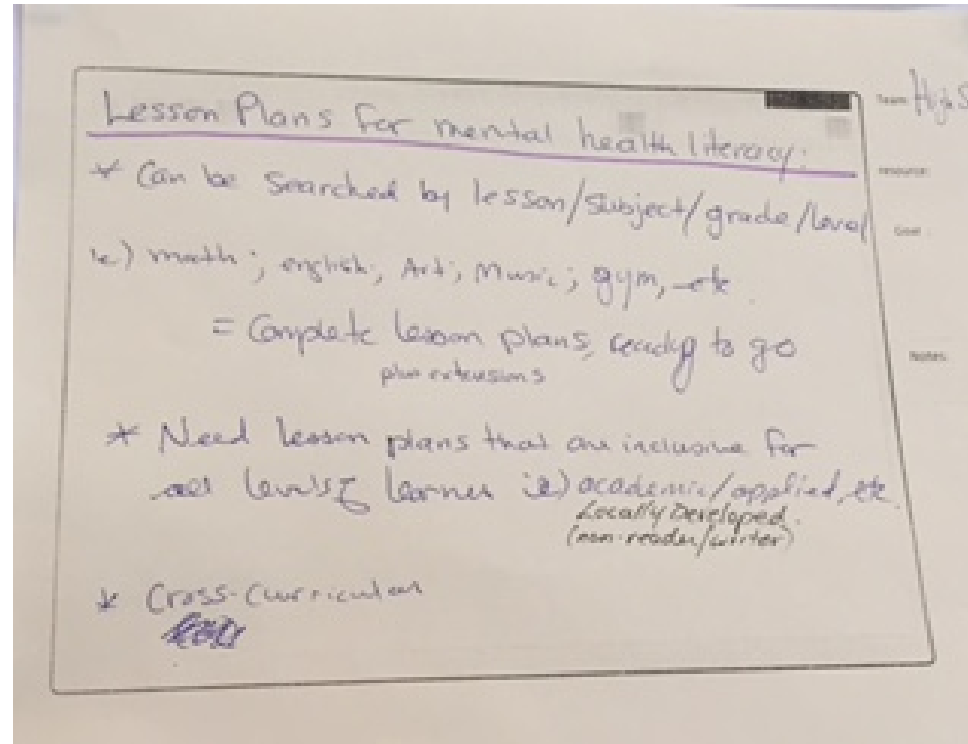 Lesson Plans for mental health literacy:
* Can be searched by lesson/subject/grade/level
ie) math; english; Art; Music; gym, etc.
= Complete lesson plans, ready to go
plus extensions
* Need lesson plans that are inclusive for
all levels of learner ie) academic/applied, etc.
Locally Developed.
(non-reader/writer)
* Cross-Curricular
Team: High S
resource:
Goal:
Notes: